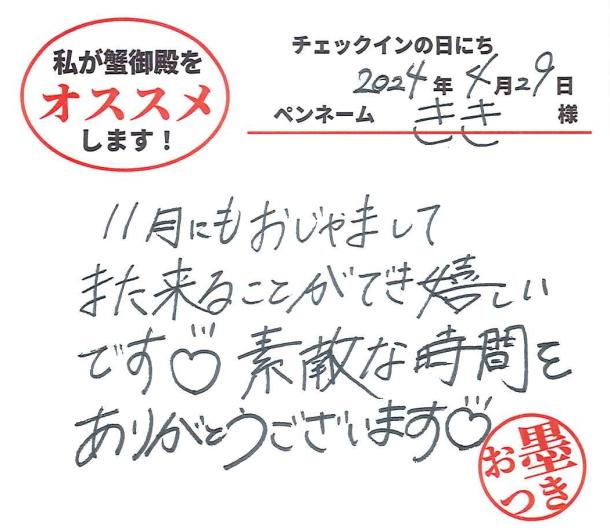 私が蟹御殿を
オススメ
します！
チェックインの日にち
2024年4月29日
ペンネーム きき 様
11月にもおじゃまして
また来ることができ嬉しい
です♡素敵な時間を
ありがとうございます♡
お墨
つき